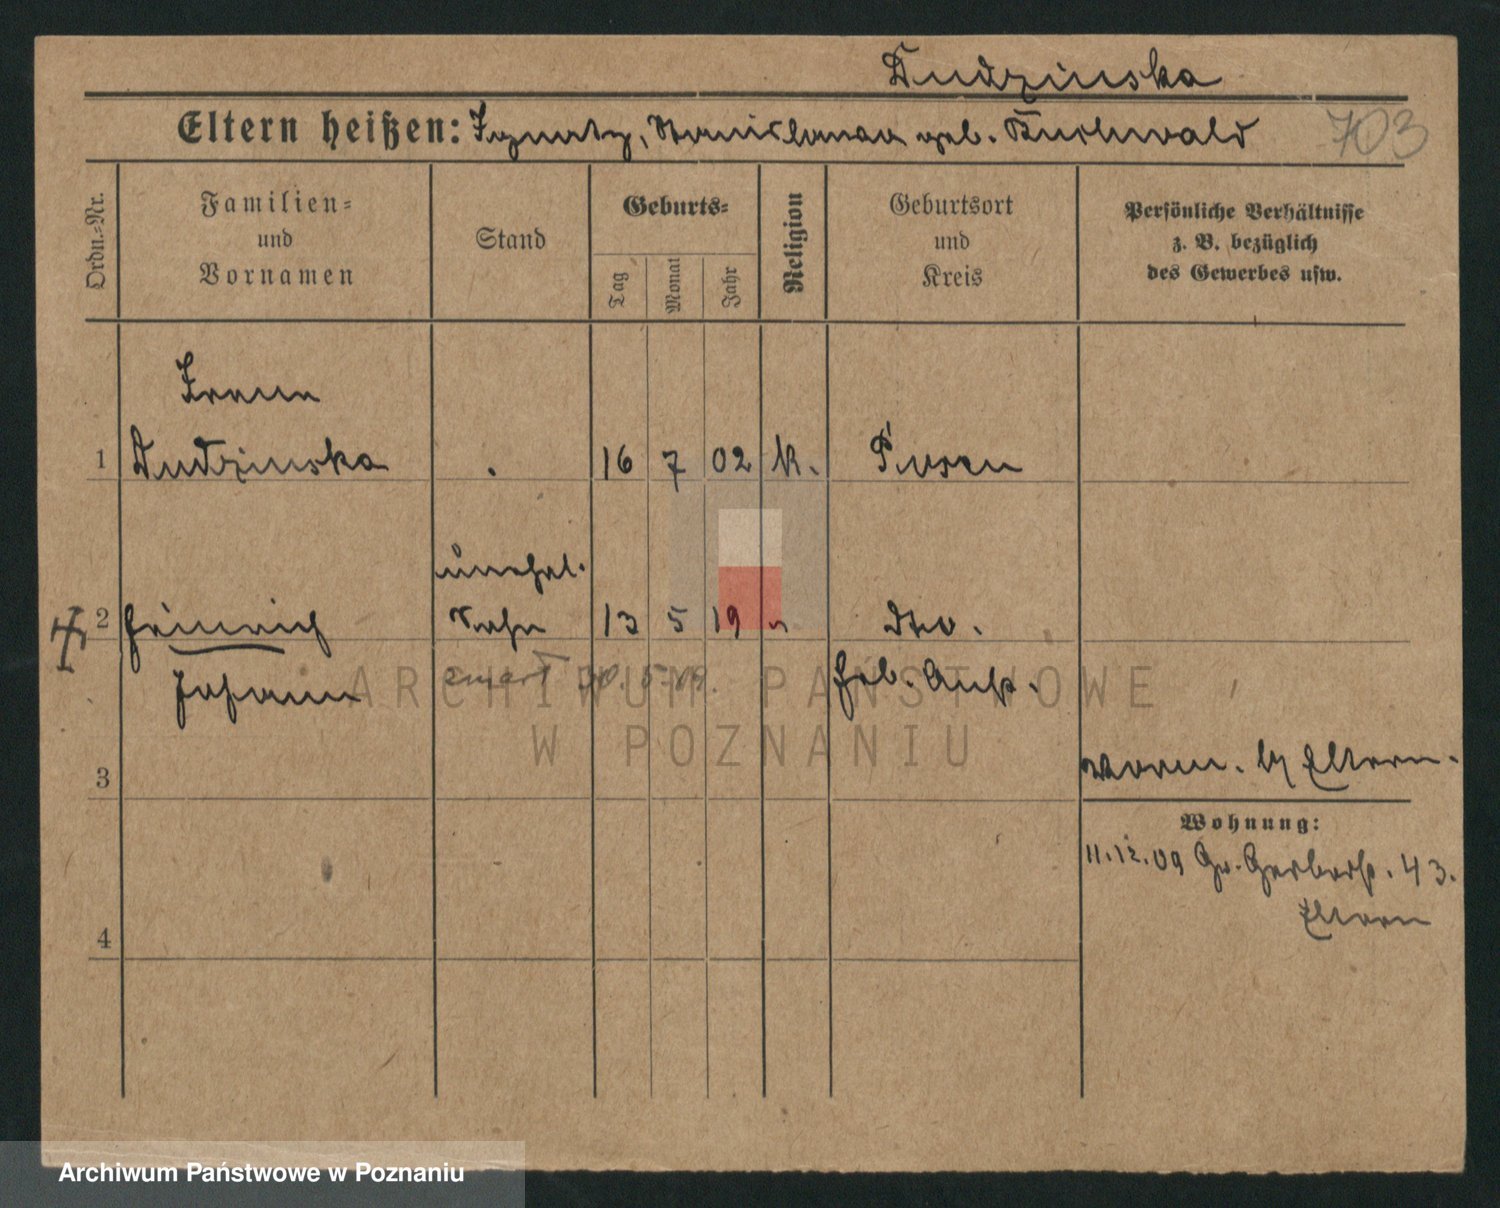 Dudzinska
Eltern heißen: Ignatz, Stanislawa geb. Buchwald
703
Ordn.=Nr.
Familien=
und
Vornamen
Stand
Geburts=
Tag
Monat
Jahr
Religion
Geburtsort
und
Kreis
Persönliche Verhältnisse
z. B. bezüglich
des Gewerbes usw.
Irene
1 Dudzinska . 16 7 02 k. Posen
unehel.
2 Heinrich Sohn 13 5 19 " dto.
Johann zmarł 30.5.19. Heb. Anst.
ARCHIWUM PAŃSTWOWE
W POZNANIU
3 b/ Eltern.
Wohnung:
11.12.09 Gr. Gerberstr. 43.
Eltern
4
Archiwum Państwowe w Poznaniu